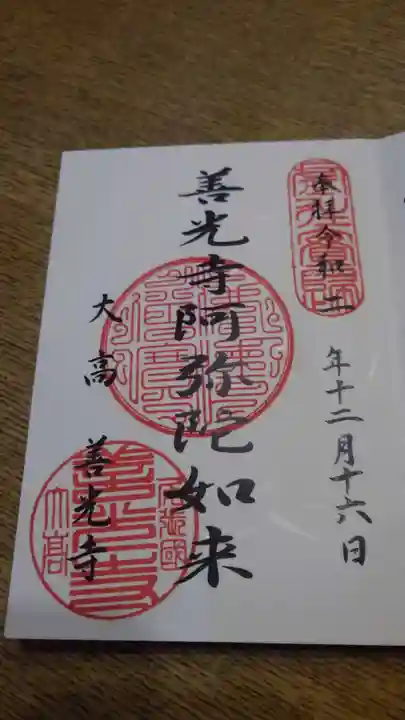 奉拝令和
年十二月十六日
善光寺阿弥陀如来
大高 善光寺
尾張國
善光寺
大高